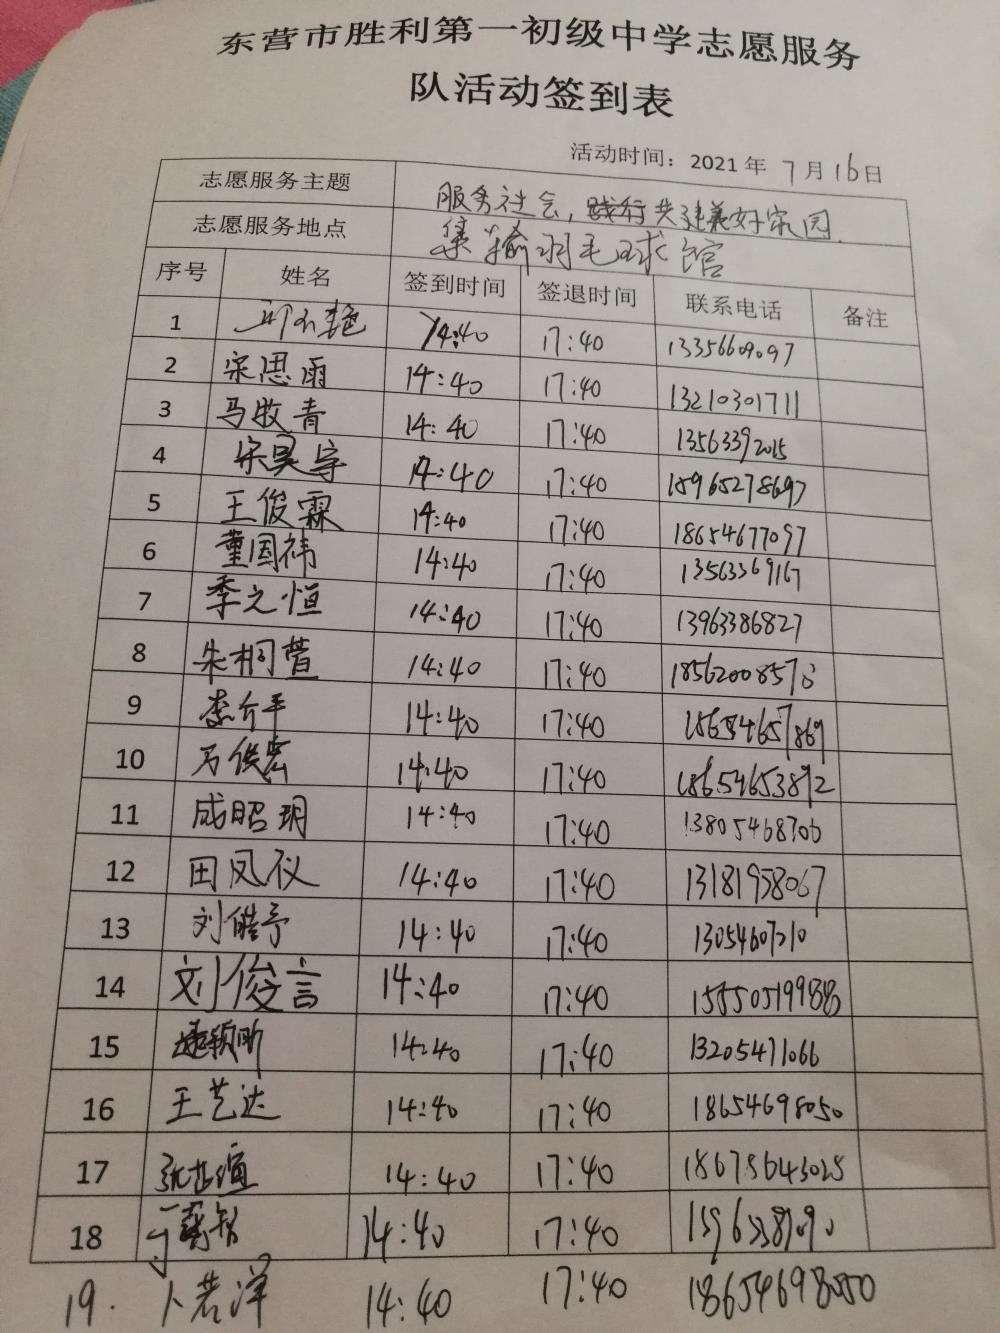 东营市胜利第一初级中学志愿服务
队活动签到表
活动时间：2021年 7月16日
志愿服务主题 服务社会，践行共建美好家园.
志愿服务地点 集输羽毛球馆
序号 姓名 签到时间 签退时间 联系电话 备注
1 14:40 17:40 13356609097
2 宋思雨 14:40 17:40 13210301711
3 马牧青 14:40 17:40 13563392015
4 宋昊宇 14:40 17:40 15965278697
5 王俊霖 14:40 17:40 18654677097
6 董国祎 14:40 17:40 13563369167
7 季之恒 14:40 17:40 13963386827
8 朱桐萱 14:40 17:40 18562008576
9 14:40 17:40 18654657869
10 14:40 17:40 18654653892
11 成昭玥 14:40 17:40 13805468706
12 田凤仪 14:40 17:40 13181958067
13 刘皓予 14:40 17:40 13054607210
14 刘俊言 14:40 17:40
15 14:40 17:40 13205471066
16 王艺达 14:40 17:40 18654698050
17 14:40 17:40 18678643025
18 14:40 17:40
19. 卜若洋 14:40 17:40 18654698050